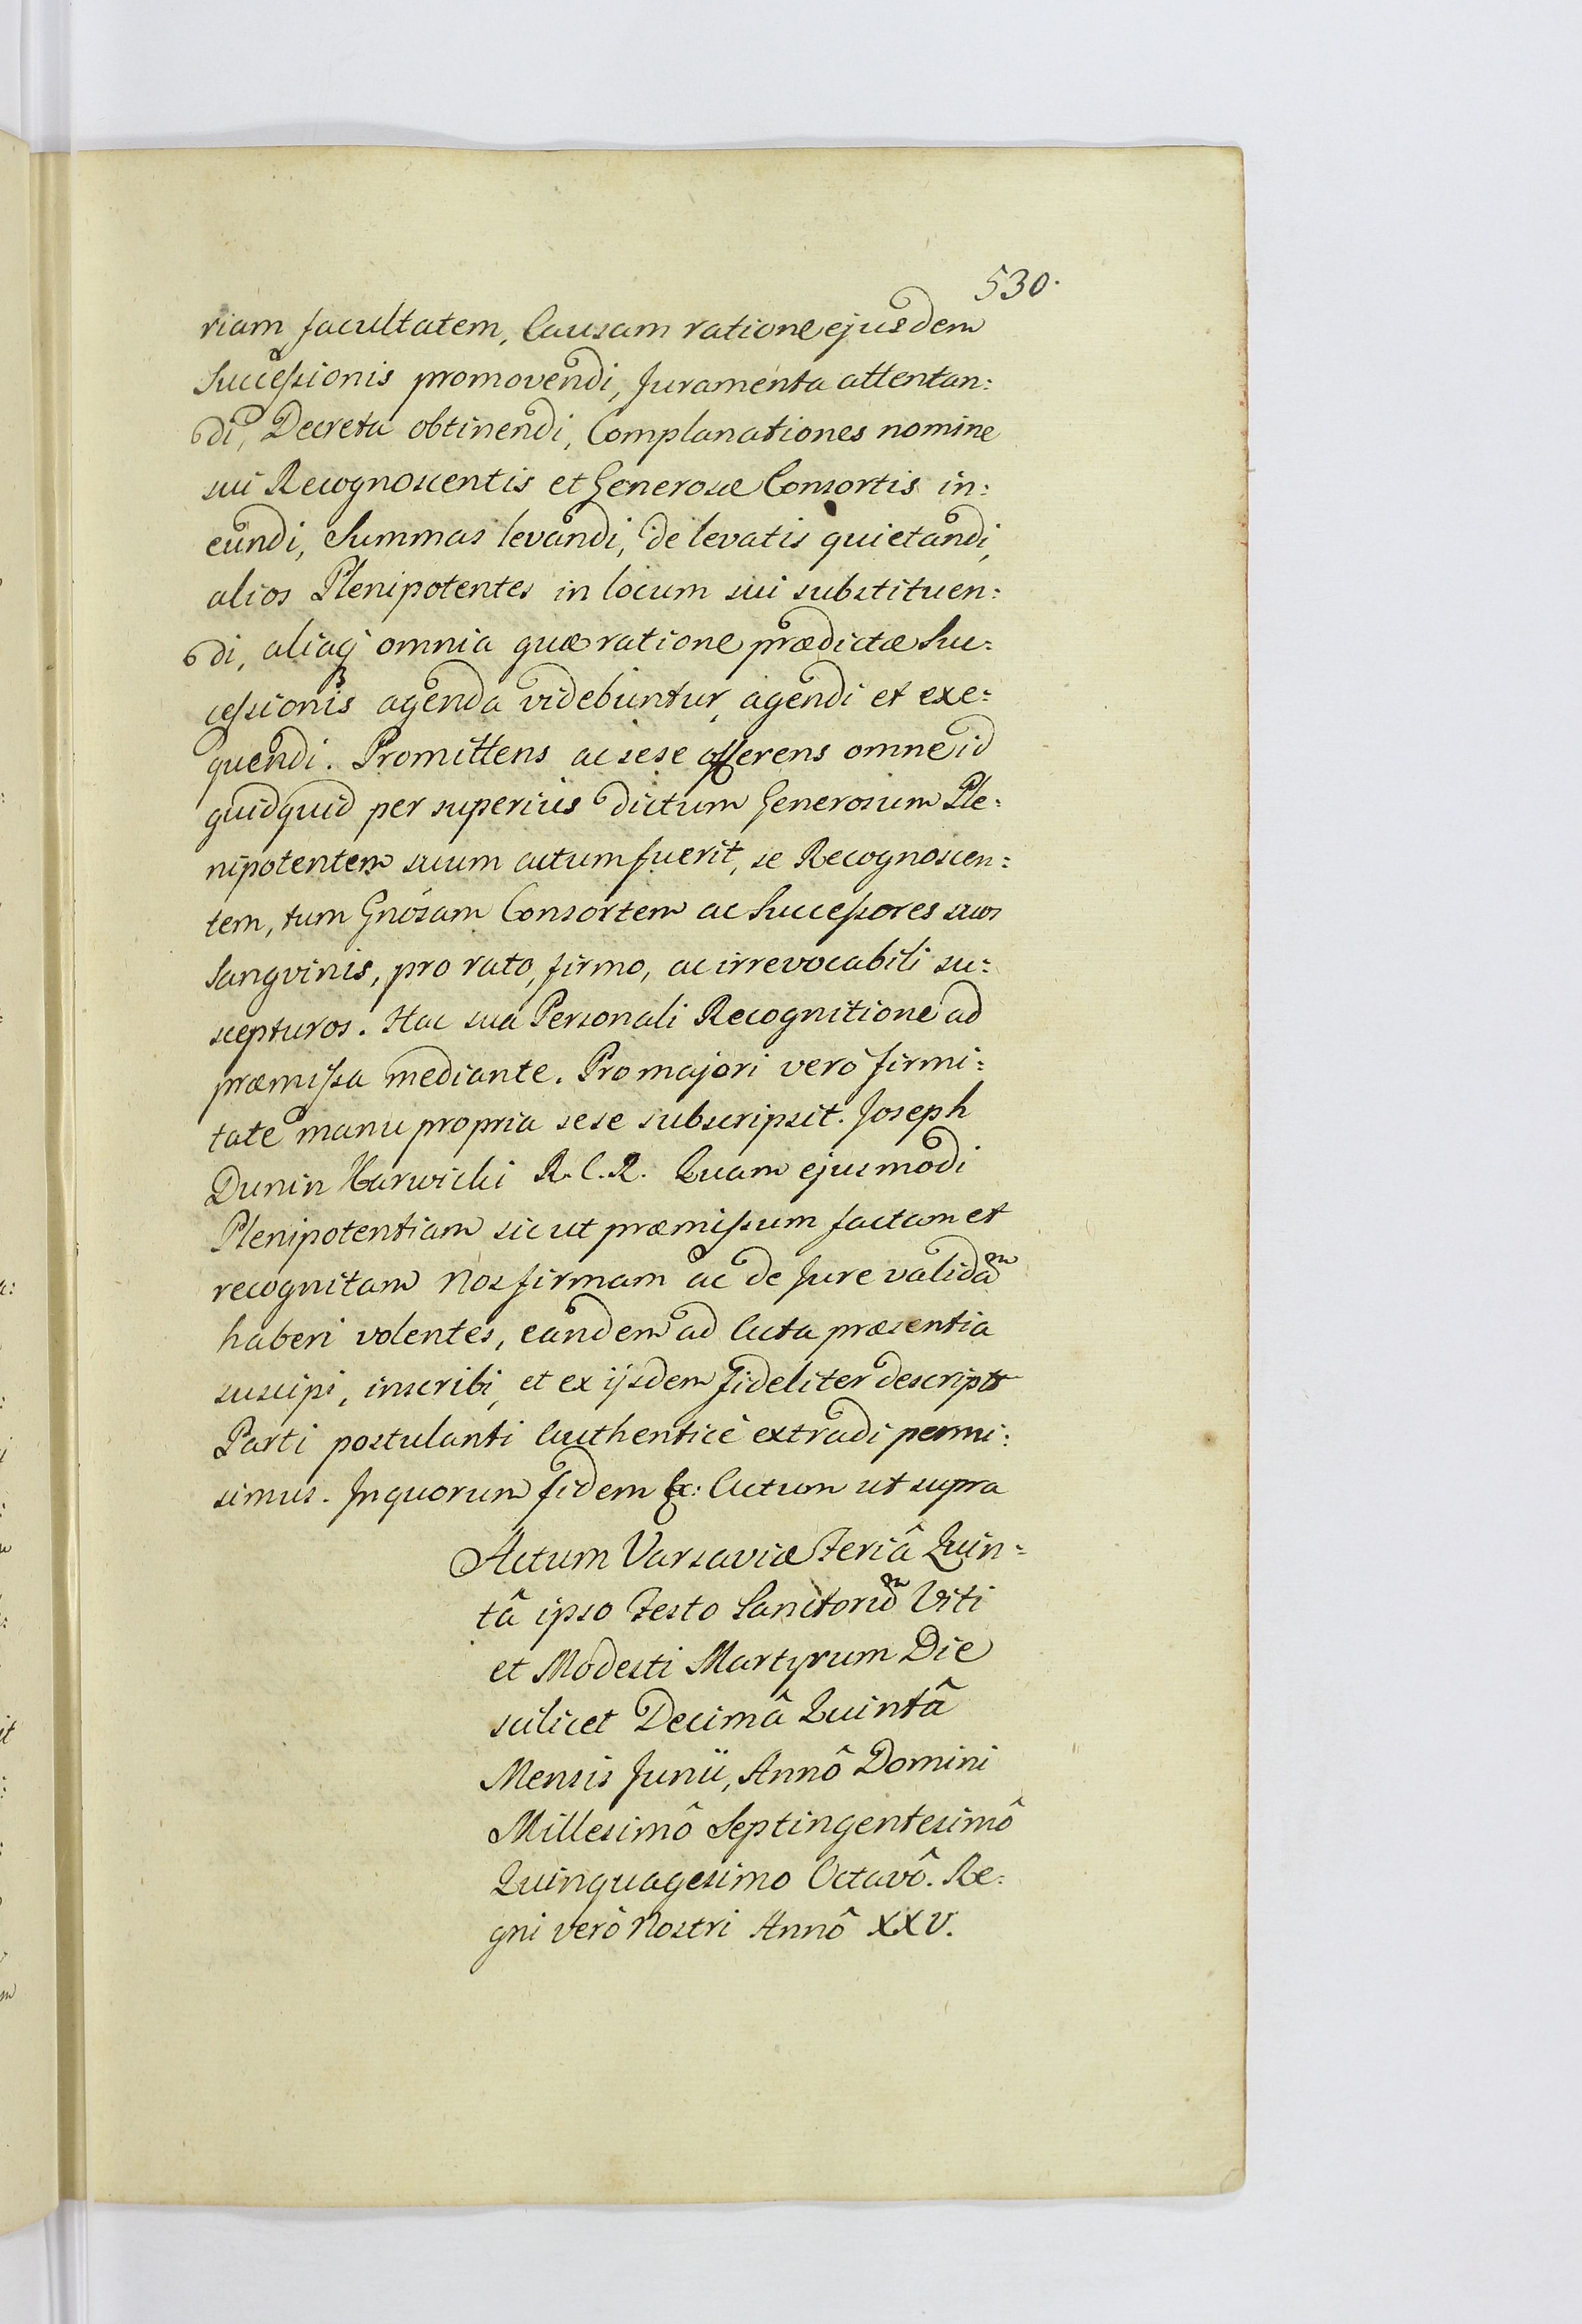 530.
riam facultatem, Causam ratione ejusdem
Successionis promovendi, Juramenta attentan:
di, Decreta obtinendi, Complanationes nomine
sui Recognoscentis et Generosæ Consortis in:
eundi, Summas levandi, de levatis quietandi,
alios Plenipotentes in locum sui substituen:
di, aliaq3 omnia quæ ratione prædictæ Suc:
cessionis agenda videbuntur, agendi et exe:
quendi. Promittens ac sese offerens omne id
quidquid per superius dictum Generosum Ple:
nipotentem suum actum fuerit, se Recognoscen:
tem, tum Gnosam Consortem ac Successores suos
Sangvinis, pro rato, firmo, ac irrevocabili su:
scepturos. Hac sua Personali Recognitione ad
præmissa mediante. Pro majori verò firmi:
tate manu propria sese subscripsit. Joseph
Dunin Karwicki R. C. R. Quam ejusmodi
Plenipotentiam sic ut præmissum factam et
recognitam Nos firmam ac de Jure validam
haberi volentes, eandem ad Acta præsentia
suscipi, inscribi, et ex ijsdem fideliter descriptã
Parti postulanti Authenticè extradi permi:
simus. In quorum fidem &c: Actum ut supra
Actum Varsaviæ Feriâ Quin:
tâ ipso Festo Sanctorum Viti
et Modesti Martyrum Die
scilicet Decimâ Quintâ
Mensis Junii, Annô Domini
Millesimô Septingentesimô
Quinquagesimo Octavô. Re:
gni verò Nostri Annô XXV.